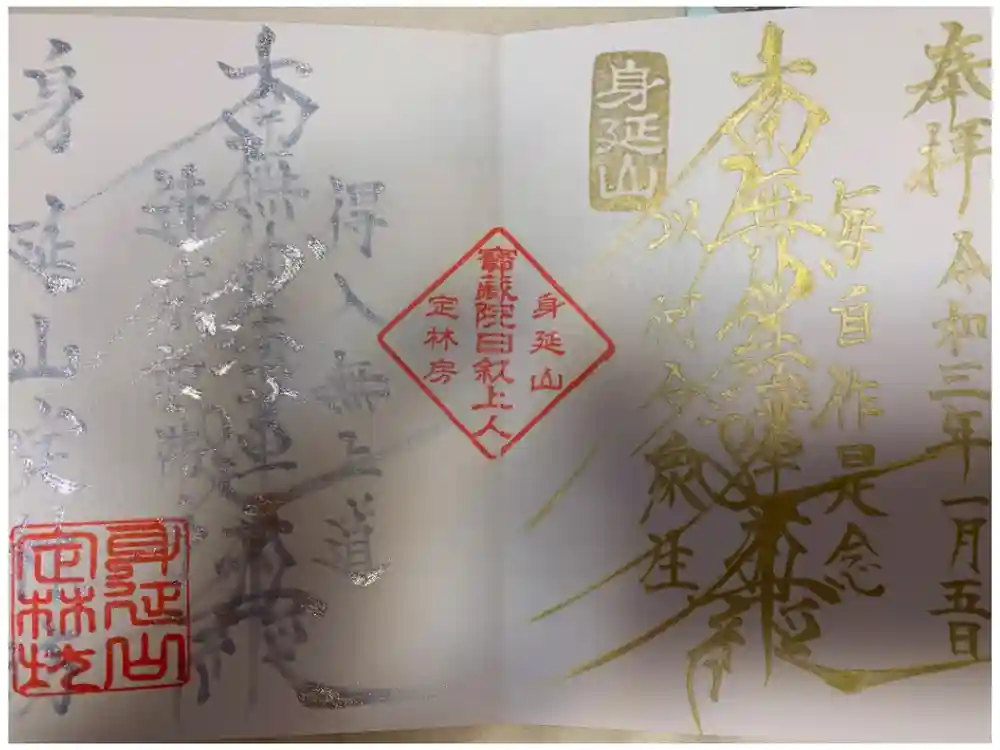 奉拝 令和三年一月五日
毎自作是念
南無妙法蓮華経
以何令衆生
身延山
身延山
寶蔵院日叙上人
定林房
得入無上道
南無妙法蓮華経
速成就佛身
身延山定林坊
身延山
定林坊